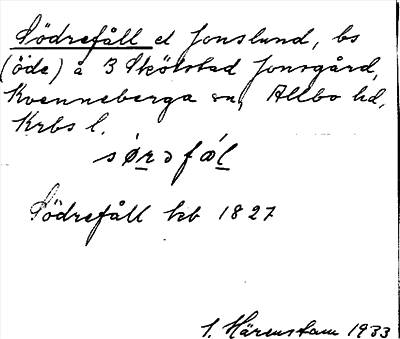 Södrefåll el Jonslund, bs
(öde) å 3 Skölstad Jonsgård,
Kvenneberga sn, Allbo hd,
Krbs l.
sǿrəfál
Södrefåll kb 1827
S. Härenstam 1933